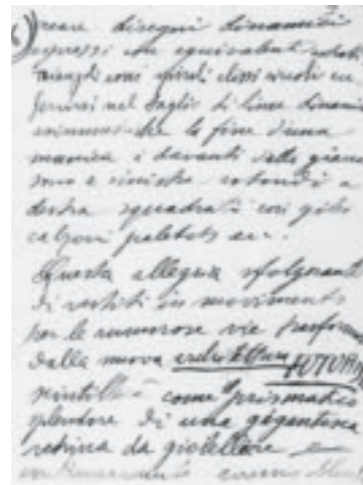 6) Creare disegni dinamici
espressi con equivalenti astratti
triangoli coni spirali elissi circoli ecc.
servirsi nel taglio di linee dinami
che la fine d'una
manica i davanti della giacca
sono a sinistra rotondi a
destra squadrati così gilet
calzoni paletots ecc.
Questa allegria sfolgorante
di vestiti in movimento
per le rumorose vie trasform
dalla nuova architettura FUTUR
scintillì come prismatico
splendore di una gigantesca
vetrina da gioielliere